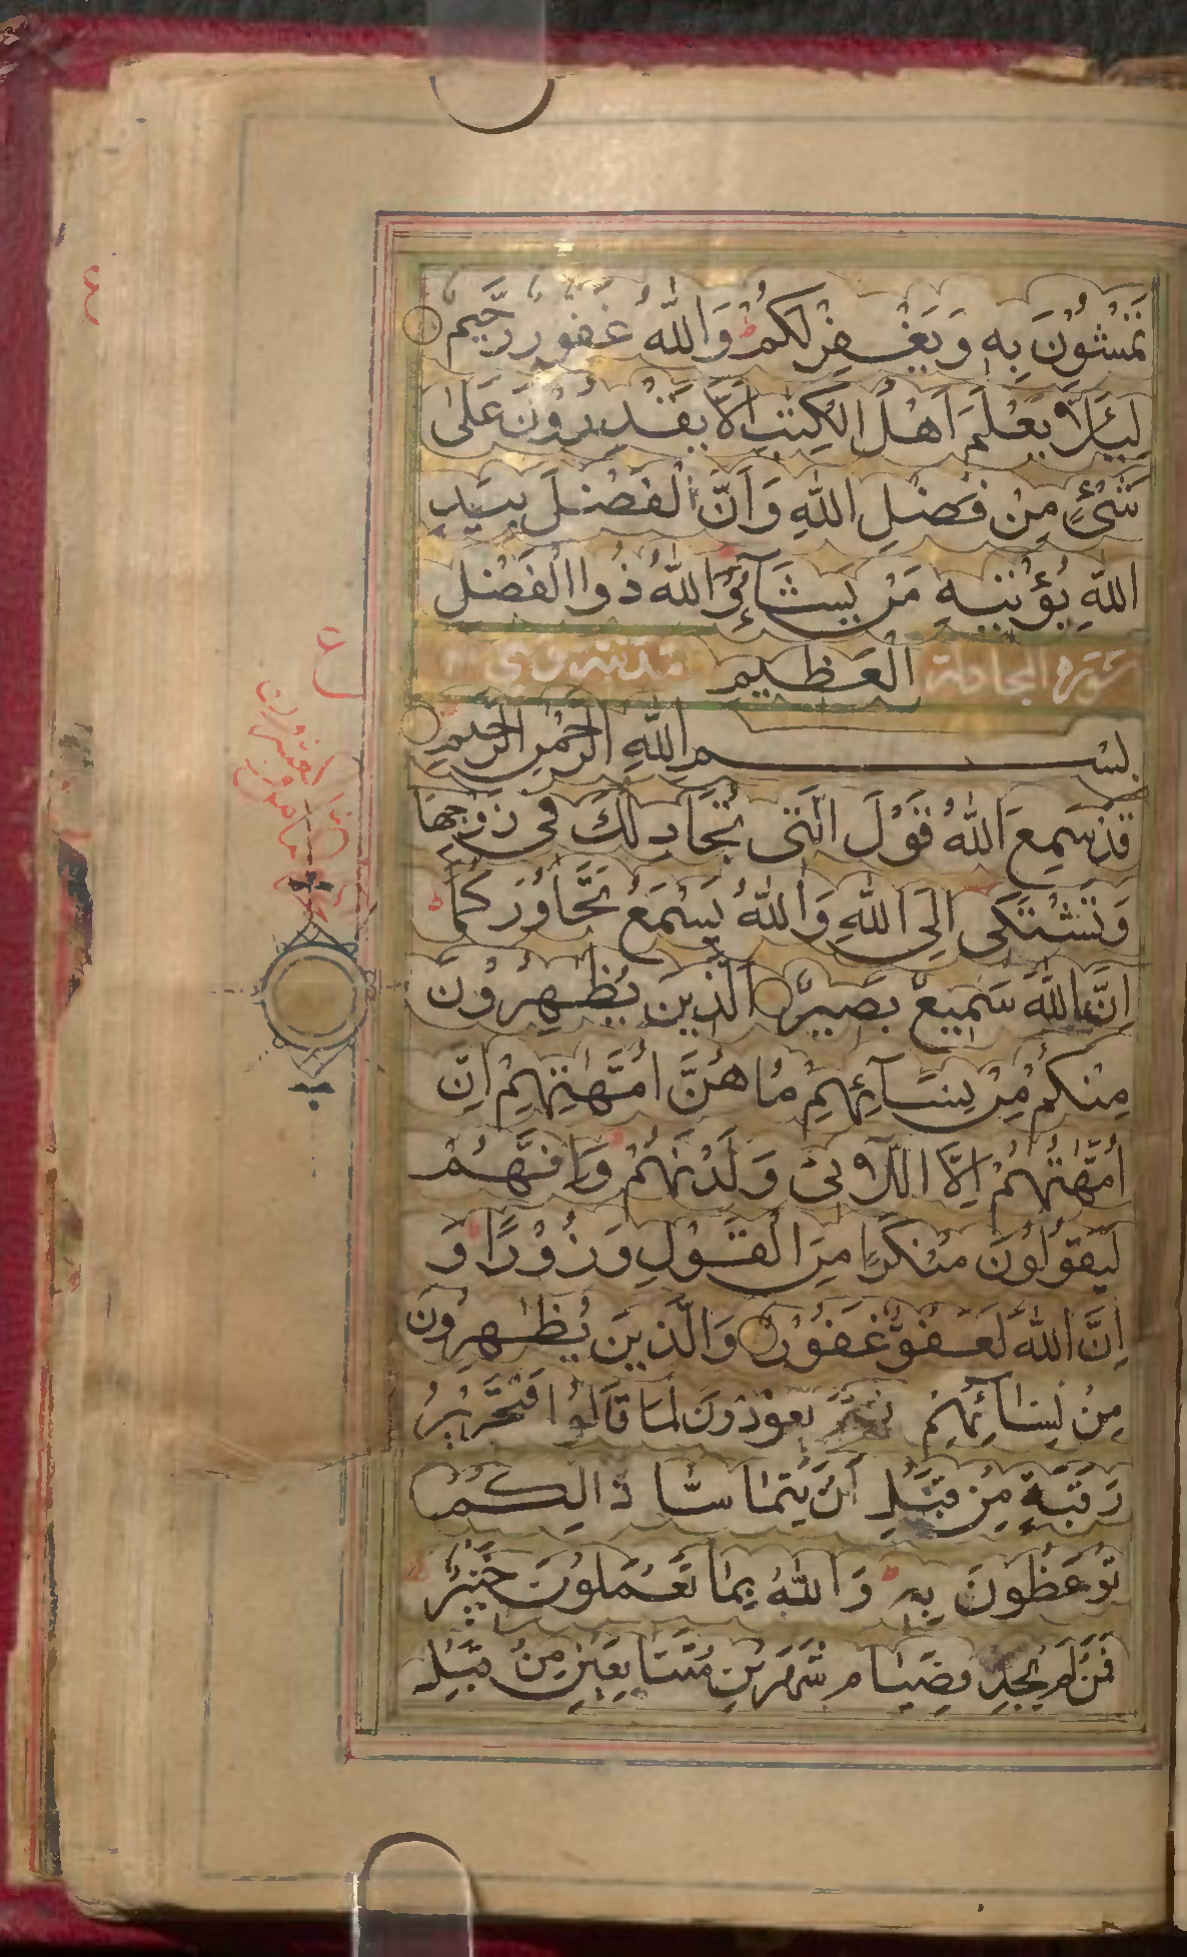 تَمْشُوْنَ بِهٖ وَيَغْفِرْ لَكُمْ ط وَاللّٰهُ غَفُوْرٌ رَّحِيْمٌ
لِيَئَلَّا يَعْلَمَ اَهْلُ الْكِتٰبِ اَلَّا يَقْدِرُوْنَ عَلٰى
شَىْءٍ مِنْ فَضْلِ اللّٰهِ وَاَنَّ الْفَضْلَ بِيَدِ
اللّٰهِ يُؤْتِيْهِ مَنْ يَشَآءُ وَاللّٰهُ ذُوا الْفَضْلِ
سورة المجادلة الْعَظِيْمِ مدنية وهى
بِسْمِ اللّٰهِ الرَّحْمٰنِ الرَّحِيْمِ
قَدْ سَمِعَ اللّٰهُ قَوْلَ الَّتِى تُجَادِلُكَ فِى زَوْجِهَا
وَتَشْتَكِى اِلَى اللّٰهِ وَاللّٰهُ يَسْمَعُ تَحَاوُرَكُمَا ط
اِنَّ اللّٰهَ سَمِيْعٌ بَصِيْرٌ اَلَّذِيْنَ يُظٰهِرُوْنَ
مِنْكُمْ مِنْ نِسَآئِهِمْ مَا هُنَّ اُمَّهٰتِهِمْ اِنْ
اُمَّهٰتُهُمْ اِلَّا اللَّآئِىْ وَلَدْنَهُمْ وَاِنَّهُمْ
لَيَقُوْلُوْنَ مُنْكَرًا مِنَ الْقَوْلِ وَزُوْرًا وَ
اِنَّ اللّٰهَ لَعَفُوٌّ غَفُوْرٌ وَالَّذِيْنَ يُظٰهِرُوْنَ
مِنْ نِسَائِهِمْ ثُمَّ يَعُوْدُوْنَ لِمَا قَالُوْا فَتَحْرِيْرُ
رَقَبَةٍ مِنْ قَبْلِ اَنْ يَتَمَاسَّا ذَالِكُمْ
تُوْعَظُوْنَ بِهٖ ط وَاللّٰهُ بِمَا تَعْمَلُوْنَ خَبِيْرٌ
فَمَنْ لَمْ يَجِدْ فَصِيَامُ شَهْرَيْنِ مُتَتَابِعَيْنِ مِنْ قَبْلِ